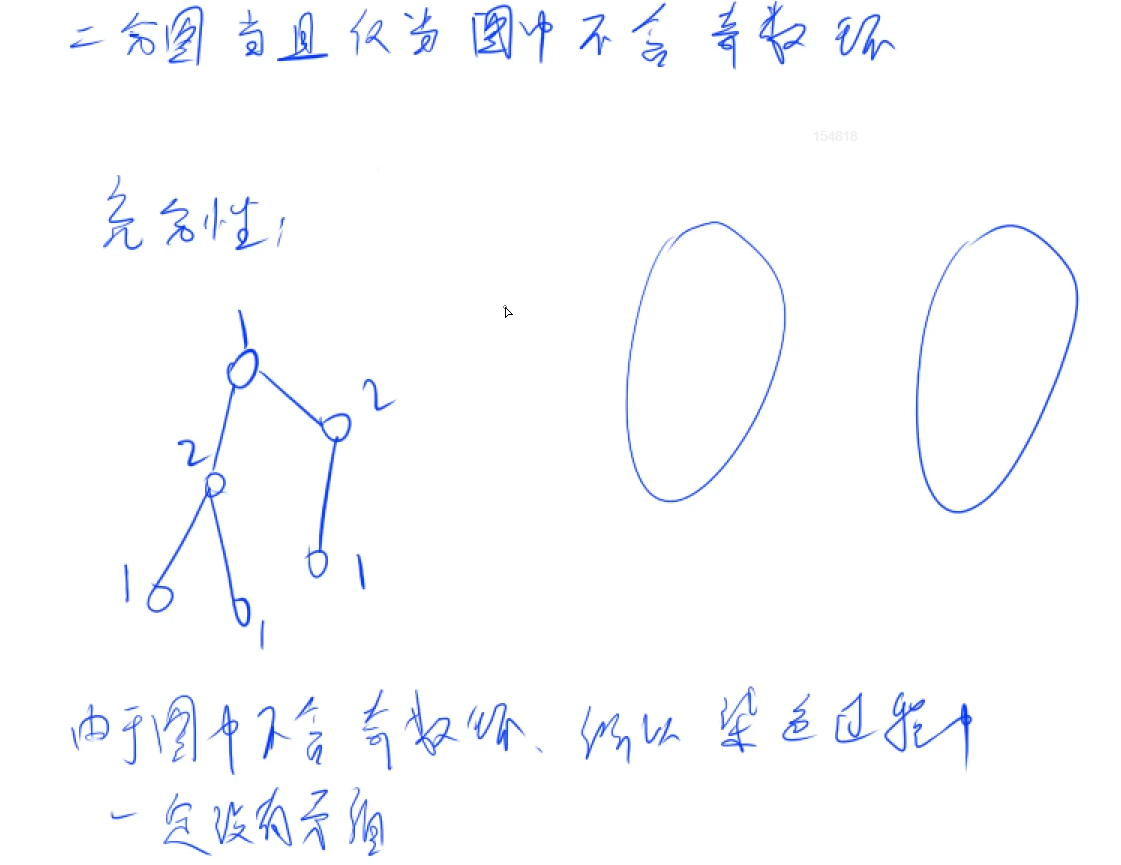 二分图当且仅当图中不含奇数环
154818
充分性:
1
2
2
1
1
1
由于图中不含奇数环、所以染色过程中
一定没有矛盾